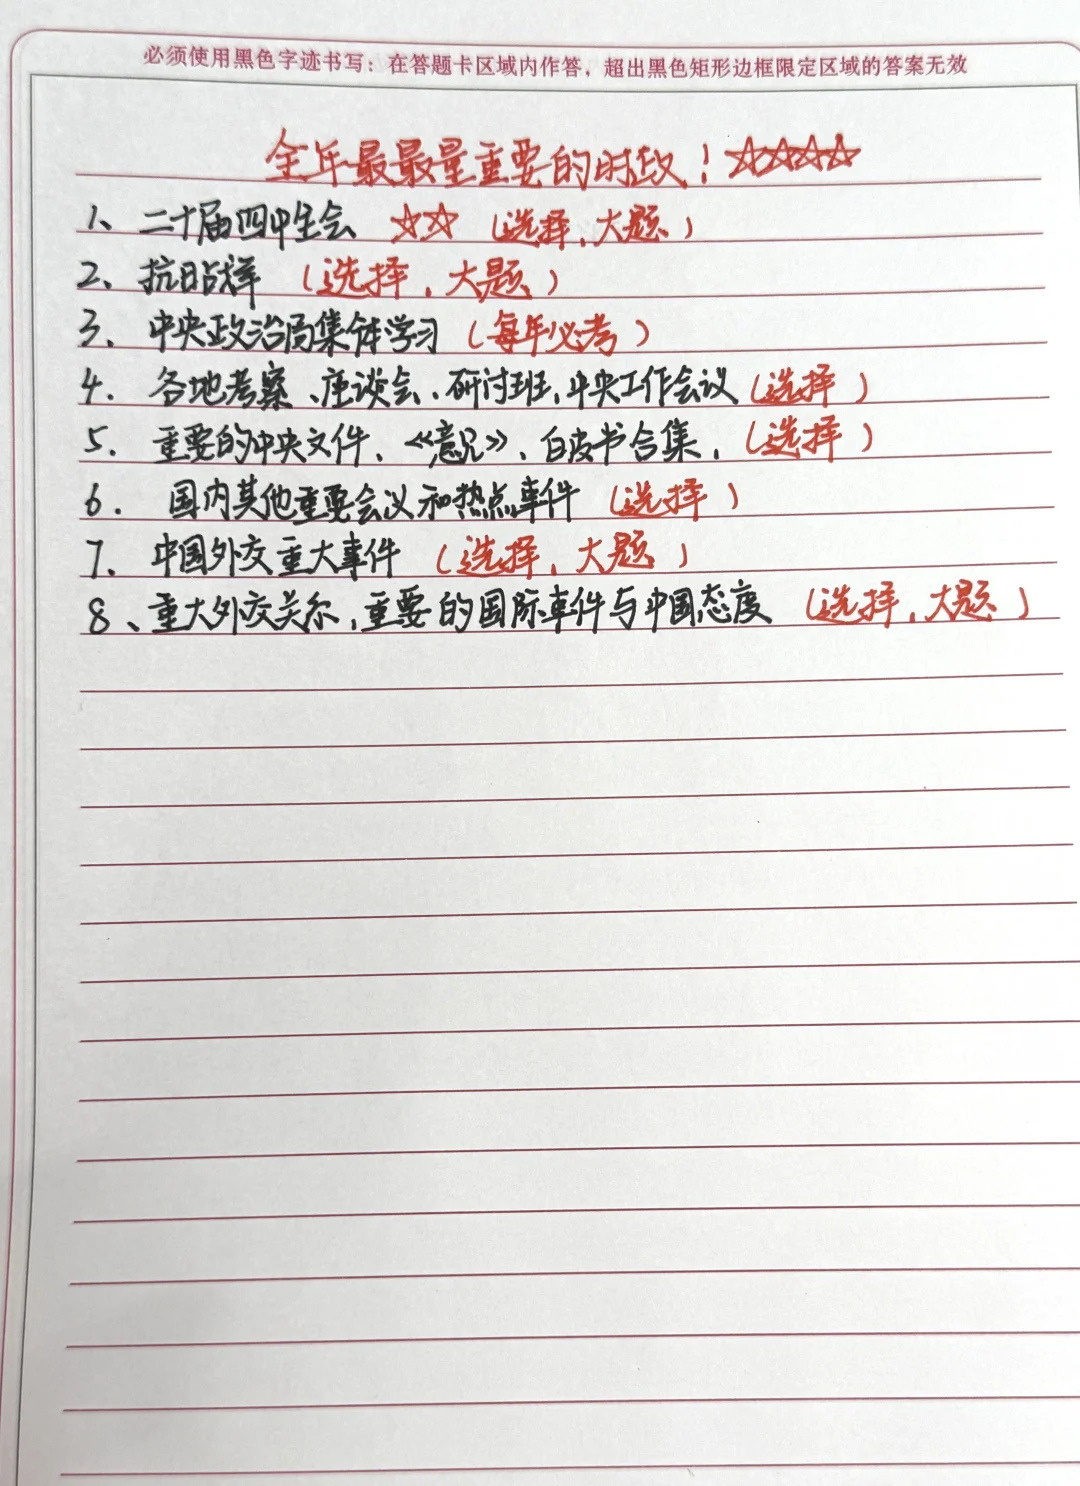 必须使用黑色字迹书写：在答题卡区域内作答，超出黑色矩形边框限定区域的答案无效
全年最最最重要的时政！☆☆☆☆
1、二十届四中全会 ☆☆（选择，大题）
2、抗日战争（选择，大题）
3、中央政治局集体学习（每年必考）
4. 各地考察、座谈会、研讨班，中央工作会议（选择）
5. 重要的中央文件、《意见》、白皮书合集，（选择）
6. 国内其他重要会议和热点事件（选择）
7、中国外交重大事件（选择，大题）
8、重大外交关系，重要的国际事件与中国态度（选择，大题）